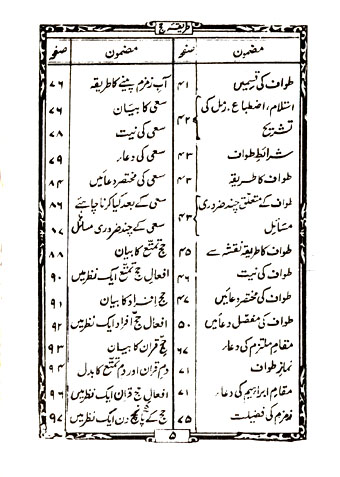 طریقۂ حج
مضمون صفحہ
طواف کی قسمیں ۴۱
استلام، اضطباع، رمل کی
تشریح ۴۲
شرائطِ طواف ۴۳
طواف کا طریقہ ۴۳
طواف کے متعلق چند ضروری
مسایٔل ۴۳
طواف کا طریقہ نقشہ سے ۴۵
طواف کی نیت ۴۶
طواف کی مختصر دعائیں ۴۷
طواف کی مفصل دعائیں ۵۰
مقام ملتزم کی دعار ۶۷
نمازِ طواف ۷۱
مقام ابراہیم کی دعار ۷۱
زمزم کی فضیلت ۷۵
مضمون صفحہ
آبِ زمزم پینے کا طریقہ ۷۶
سعی کا بیان ۷۶
سعی کی نیت ۷۸
سعی کی دعار ۷۹
سعی کی مختصر دعائیں ۸۴
سعی کے بعد کیا کرنا چاہئے ۸۶
سعی کے چند ضروری مسائل ۸۷
حج تمتع کا بیان ۸۸
افعالِ حج تمتع ایک نظر میں ۹۰
حج افراد کا بیان ۹۱
افعال حج افراد ایک نظر میں ۹۲
حج قران کا بیان ۹۳
دم قران اور دم تمتع کا بدل ۹۴
افعال حج قران ایک نظر میں ۹۶
حج کے پانچ دن ایک نظر میں ۹۷
۵